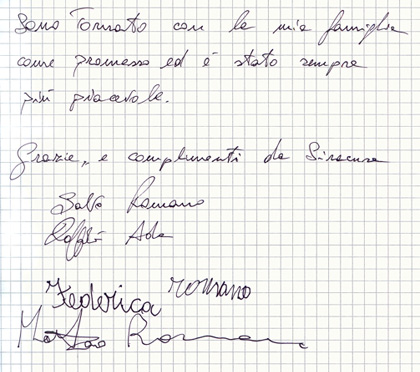 Sono Tornato con la mia famiglia
come promesso ed è stato sempre
più piacevole.
Grazie, e complimenti da Siracusa
Salvo Romano
Ada
Federica romano
Matteo Romano